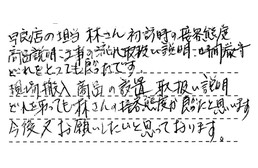 貴店の担当 林さん 初訪時の接客態度
商品説明・工事の流れ取扱い説明・時間厳守
どれをとっても良好です。
現場搬入 商品の設置 取扱い説明
どれを取っても林さんの接客態度が良好だと思います
今後又お願いしたいと思っております。